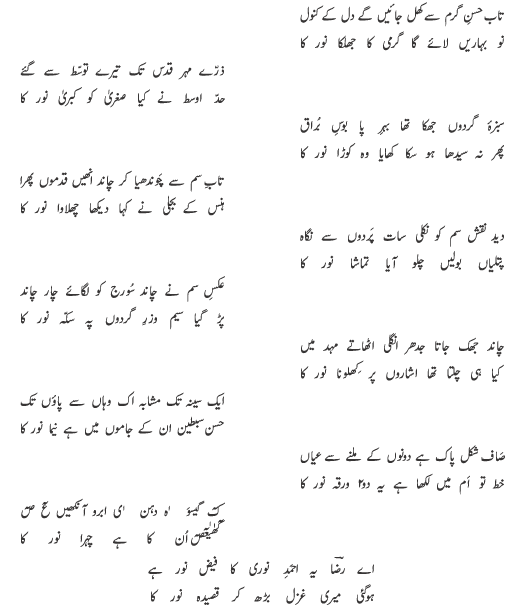 تاب حسنِ گرم سے کھل جائیں گے دل کے کنول
نو بہاریں لائے گا گرمی کا جھلکا نور کا
ذرّے مہر قدس تک تیرے توسّط سے گئے
حدّ اوسط نے کیا صغریٰ کو کبریٰ نور کا
سبزۂ گردوں جھکا تھا بہرِ پا بوسِ بُراق
پھر نہ سیدھا ہو سکا کھایا وہ کوڑا نور کا
تابِ سم سے چوندھیا کر چاند انھیں قدموں پھرا
ہنس کے بجلی نے کہا دیکھا چھلاوا نور کا
دید نقش سم کو نکلی سات پَردوں سے نگاہ
پتلیاں بولیں چلو آیا تماشا نور کا
عکسِ سم نے چاند سُورج کو لگائے چار چاند
پڑ گیا سیم وزرِ گردوں پہ سکّہ نور کا
چاند جھک جاتا جدھر انگلی اٹھاتے مہد میں
کیا ہی چلتا تھا اشاروں پر کِھلونا نور کا
ایک سینہ تک مشابہ اک وہاں سے پاؤں تک
حسن سبطین ان کے جاموں میں ہے نیما نور کا
صَاف شکل پاک ہے دونوں کے ملنے سے عیاں
خط تو اَم میں لکھا ہے یہ دو۲ ورقہ نور کا
گیسوٗ ہ دہن ی ابرو آنکھیں عؔ صؔ
کٓھٰیٰعٓصٓ اُن کا ہے چہرا نور کا
اے رضؔا یہ احمدِ نوری کا فیض نور ہے
ہوگئی میری غزل بڑھ کر قصیدہ نور کا